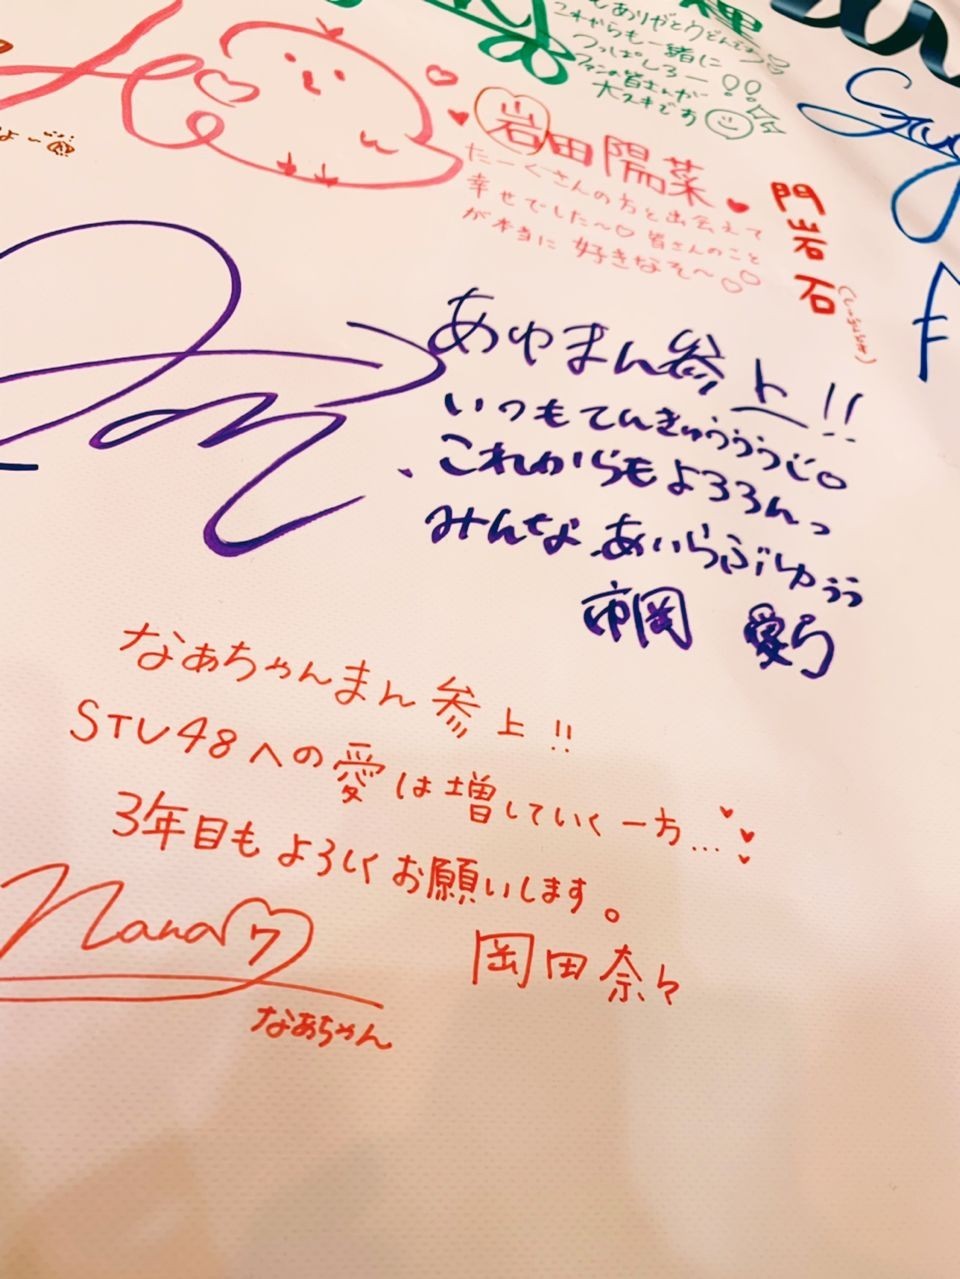 もありがとうどんてん
これからも一緒に
つっぱしろー!!
ファンの皆さんが
大スキです
岩田陽菜
たーくさんの方と出会えて
幸せでした〜♡ 皆さんのこと
が本当に好きなそ〜♡♡
門
岩
石
あゆまん参上!!
いつもてんきゅうううじ○
これからもよろろんっ
みんなあいらぶゆぅぅ
市岡 愛弓
なぁちゃんまん参上!!
STU48への愛は増していく一方...♥♥♥
3年目もよろしくお願いします。
Nana♡7
岡田奈々
なぁちゃん